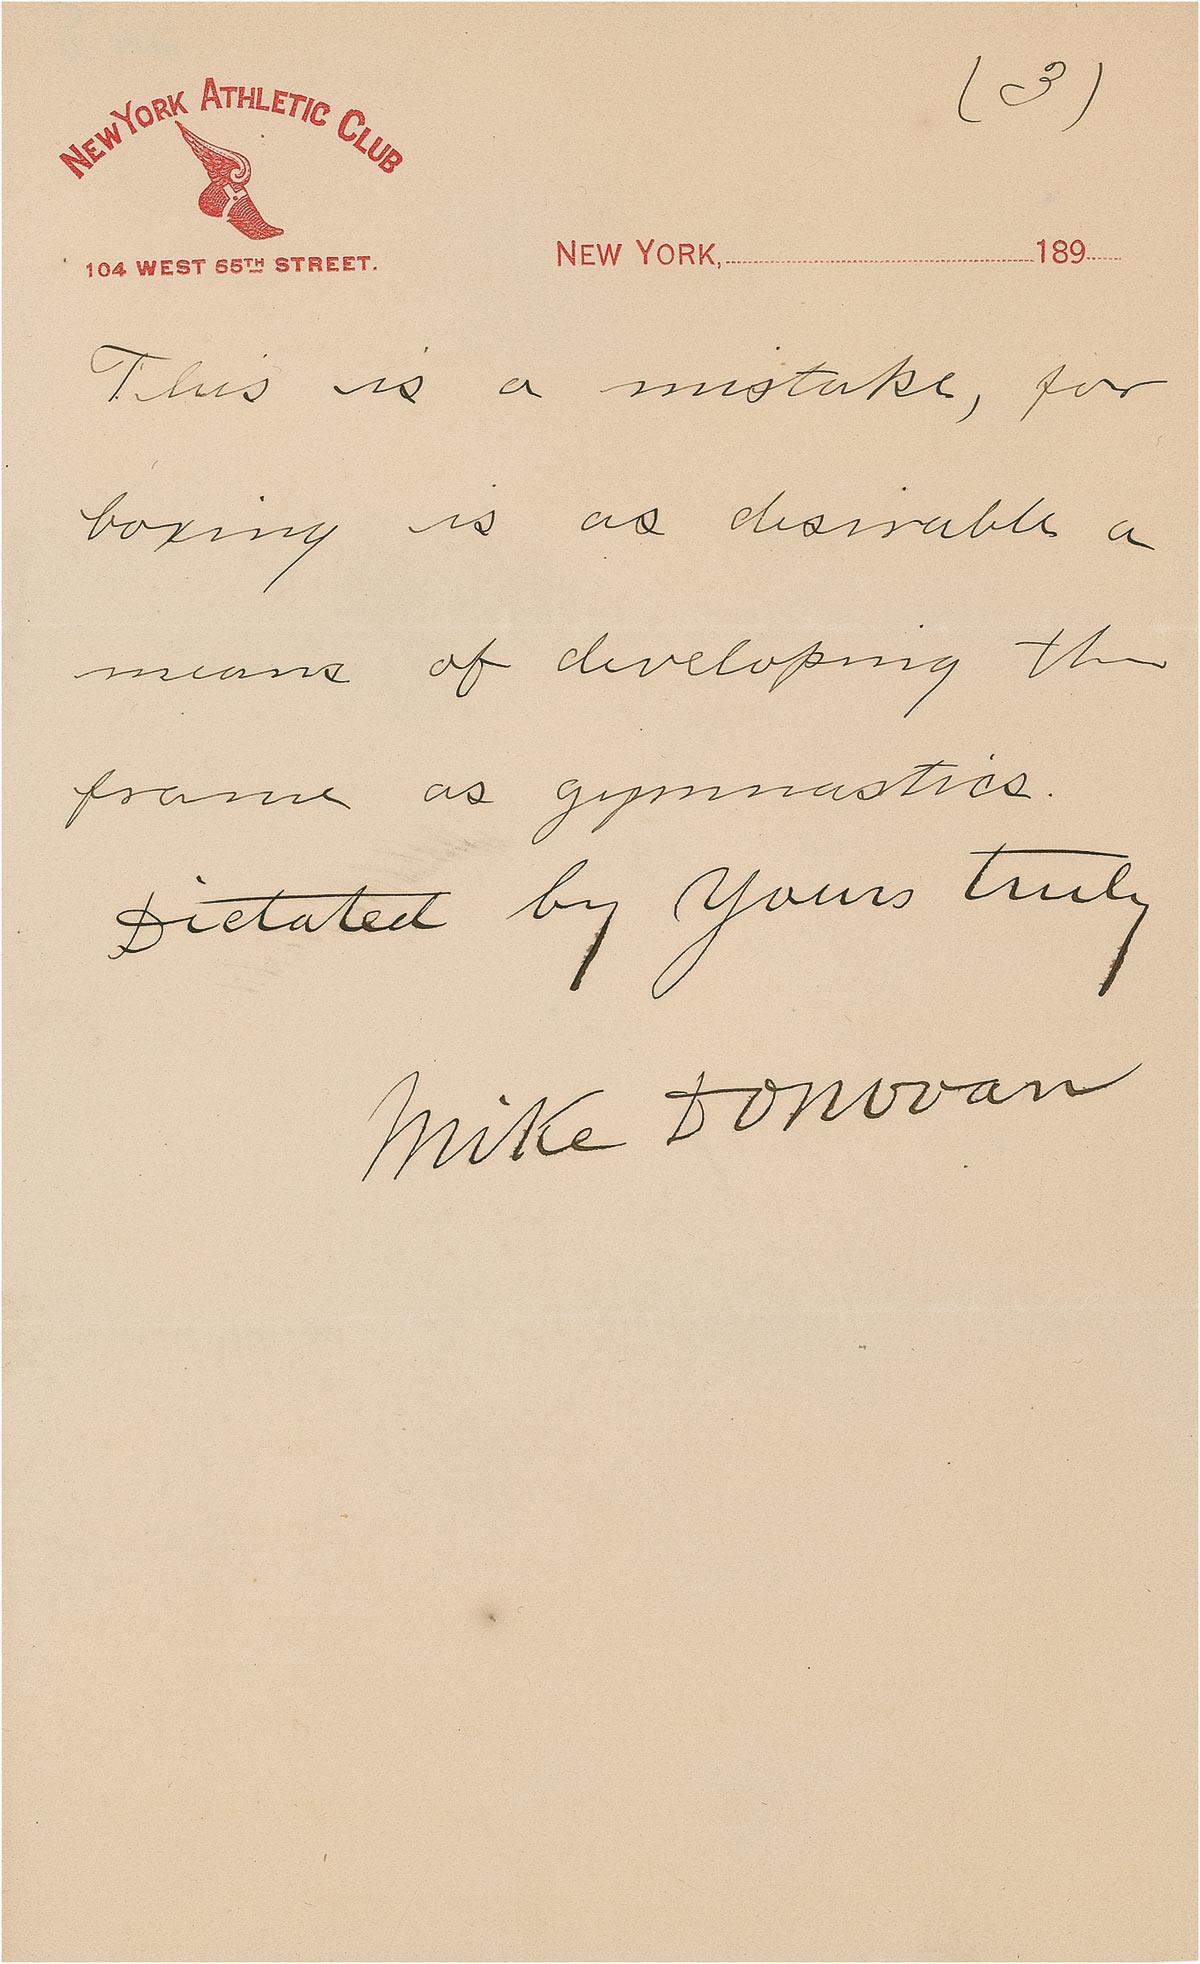 (3)
NEW YORK ATHLETIC CLUB
104 WEST 55TH STREET.
NEW YORK, 189
This is a mistake, for
boxing is as desirable a
means of developing the
frame as gymnastics.
Dictated by Yours truly
Mike Donovan